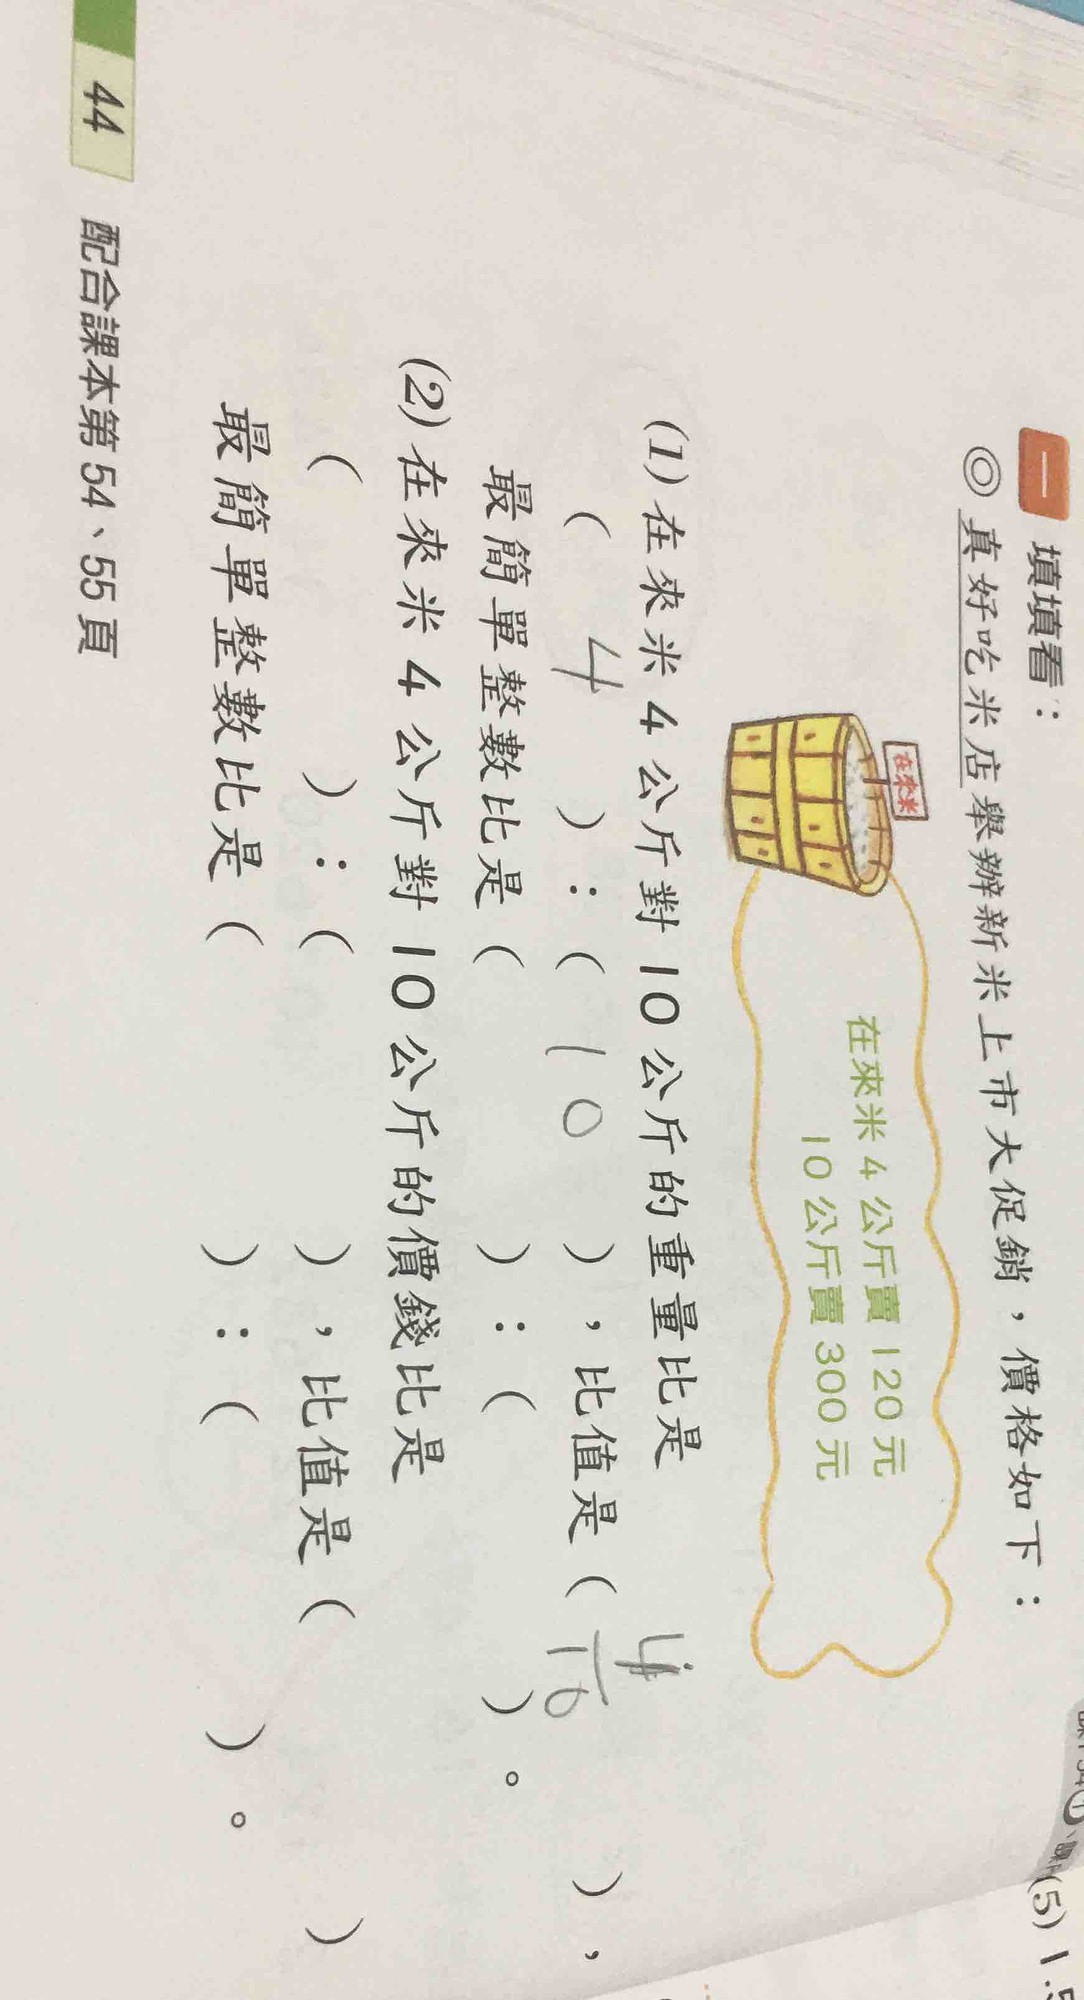 一 填填看：
◎真好吃米店舉辦新米上市大促銷，價格如下：
在來米
在來米 4 公斤賣 120 元
10 公斤賣 300 元
(1)在來米 4 公斤對 10 公斤的重量比是
( 4 )：( 10 )，比值是( 4/10 )，
最簡單整數比是( )：( )。
(2)在來米 4 公斤對 10 公斤的價錢比是
( )：( )，比值是( )
最簡單整數比是( )：( )。
44 配合課本第 54、55 頁
(5) 1.5